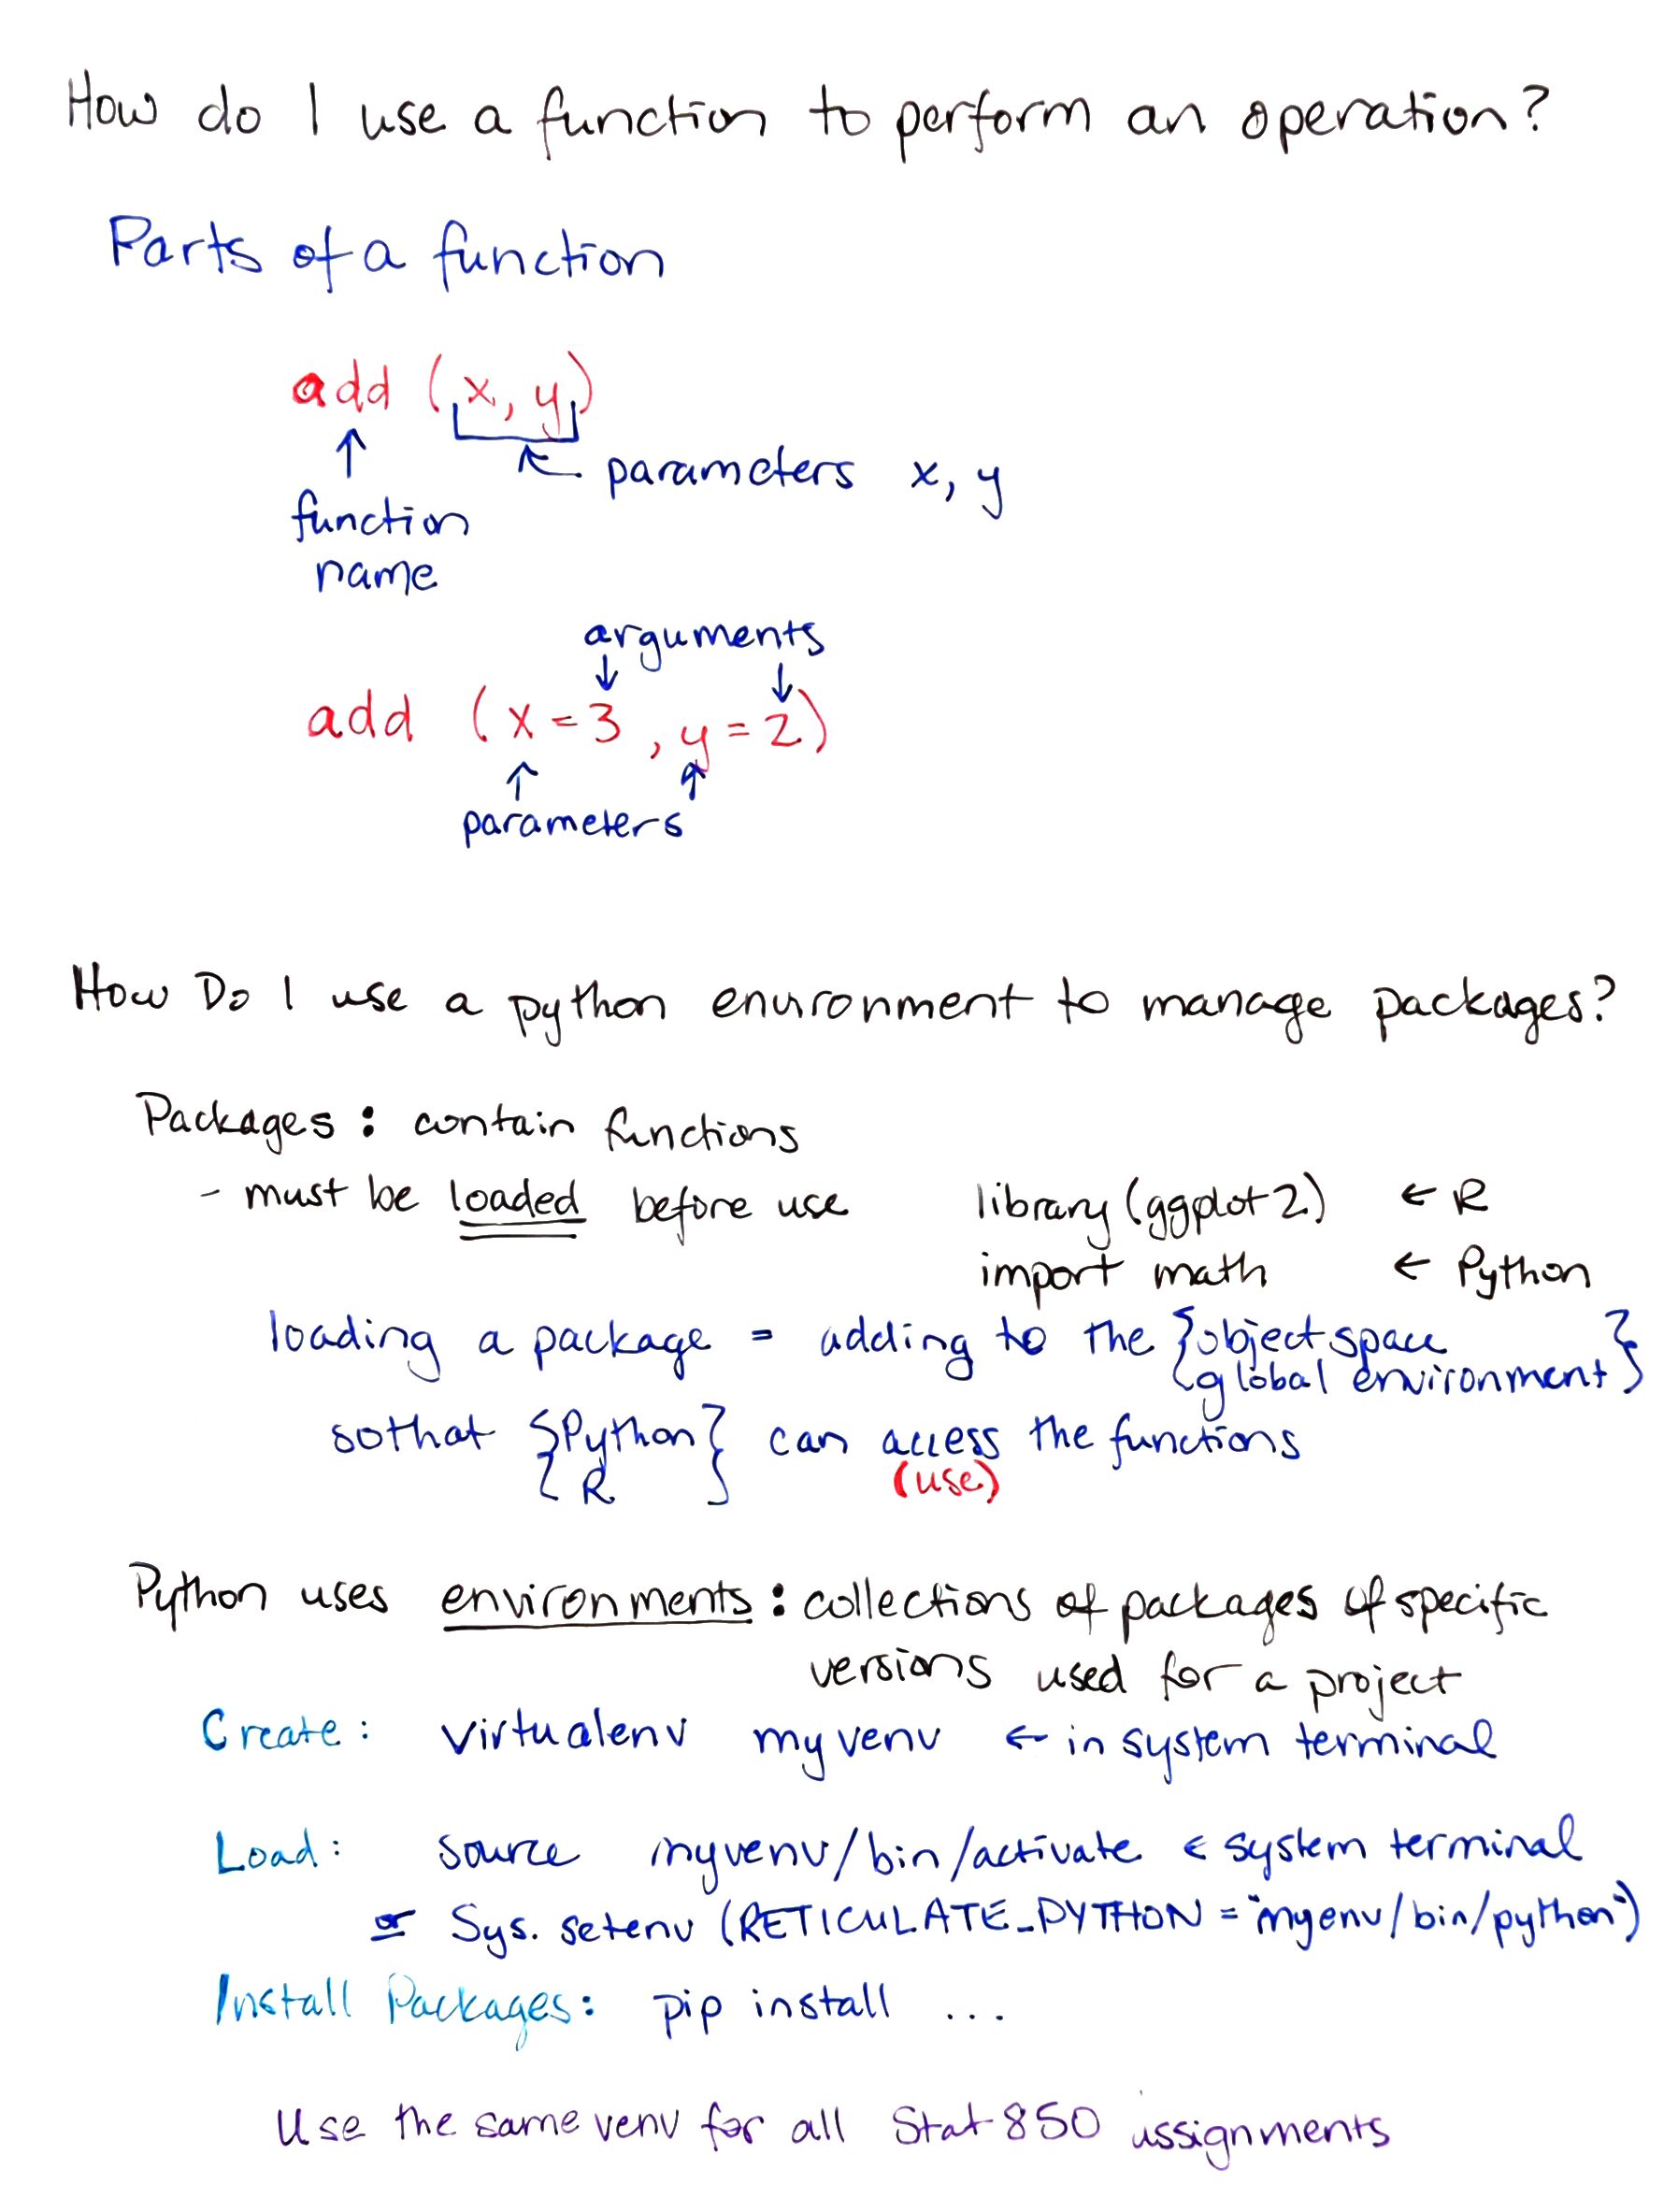 How do I use a function to perform an operation?
Parts of a function
add (x, y)
parameters x, y
function
name
arguments
add (x = 3, y = 2)
parameters
How Do I use a python environment to manage packages?
Packages: contain functions
- must be loaded before use library(ggplot2) ← R
import math ← Python
loading a package = adding to the {object space
global environment}
so that {Python} can access the functions
R (use)
Python uses environments: collections of packages of specific
versions used for a project
Create: virtualenv myvenv ← in system terminal
Load: source myvenv/bin/activate ← system terminal
or Sys.setenv (RETICULATE_PYTHON = "myenv/bin/python")
Install Packages: pip install ...
Use the same venv for all Stat 850 assignments